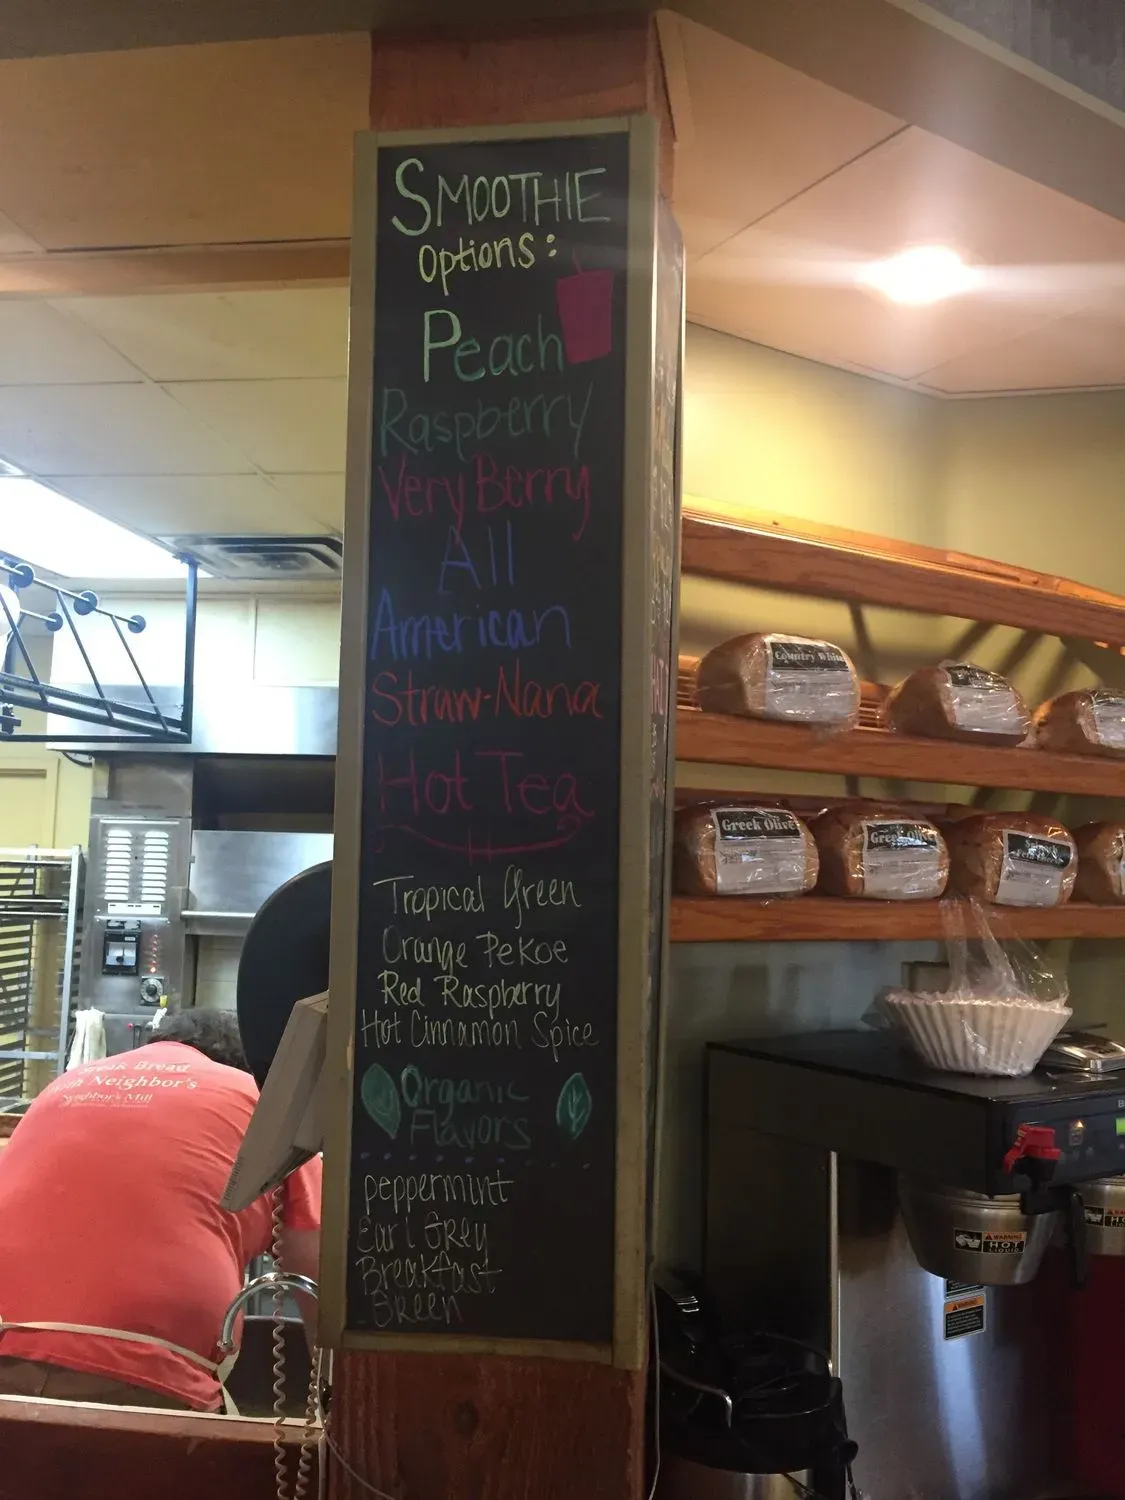 SMOOTHIE
Options:
Peach
Raspberry
Very Berry
All
American
Straw-Nana
Hot Tea
Tropical Green
Orange Pekoe
Red Raspberry
Hot Cinnamon Spice
Organic
Flavors
peppermint
Earl Grey
Breakfast
Green
Break Bread
with Neighbor's
Neighbor's Mill
Country White
Greek Olive
Greek Olive
WARNING
HOT
LIQUID
WARNING